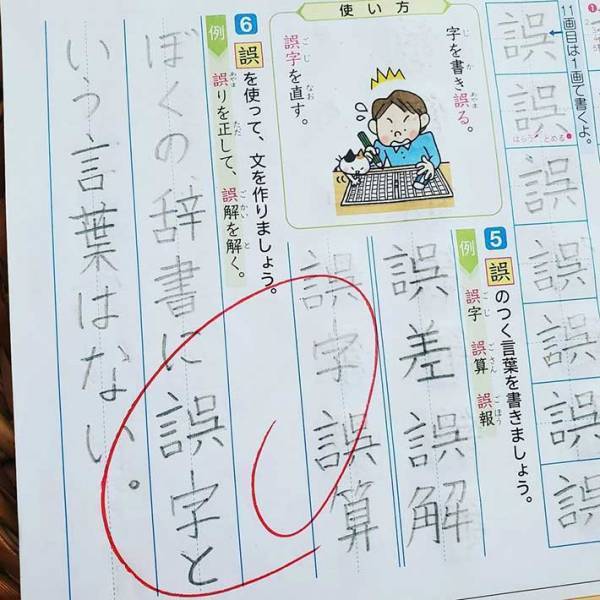 11画目は1画で書くよ。
誤
誤
誤
誤
誤
誤
誤
はらう
とめる
使い方
字を書き誤る。
じ か あやま
誤字を直す。
ごじ なお
5 誤のつく言葉を書きましょう。
例 誤字 誤算 誤報
ごじ ごさん ごほう
誤差 誤解
誤字 誤算
6 誤を使って、文を作りましょう。
例 誤りを正して、誤解を解く。
あやま ただ ごかい と
ぼくの辞書に誤字と
いう言葉はない。